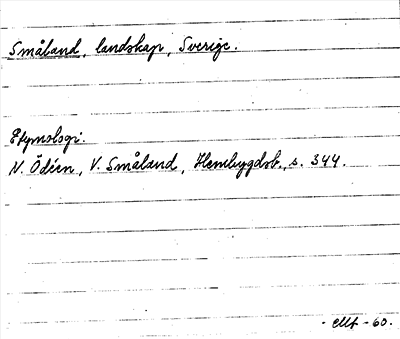 Småland, landskap, Sverige.
Etymologi:
N. Ödéen, V. Småland, Hembygdsb., s. 344.
- EMt - 60.